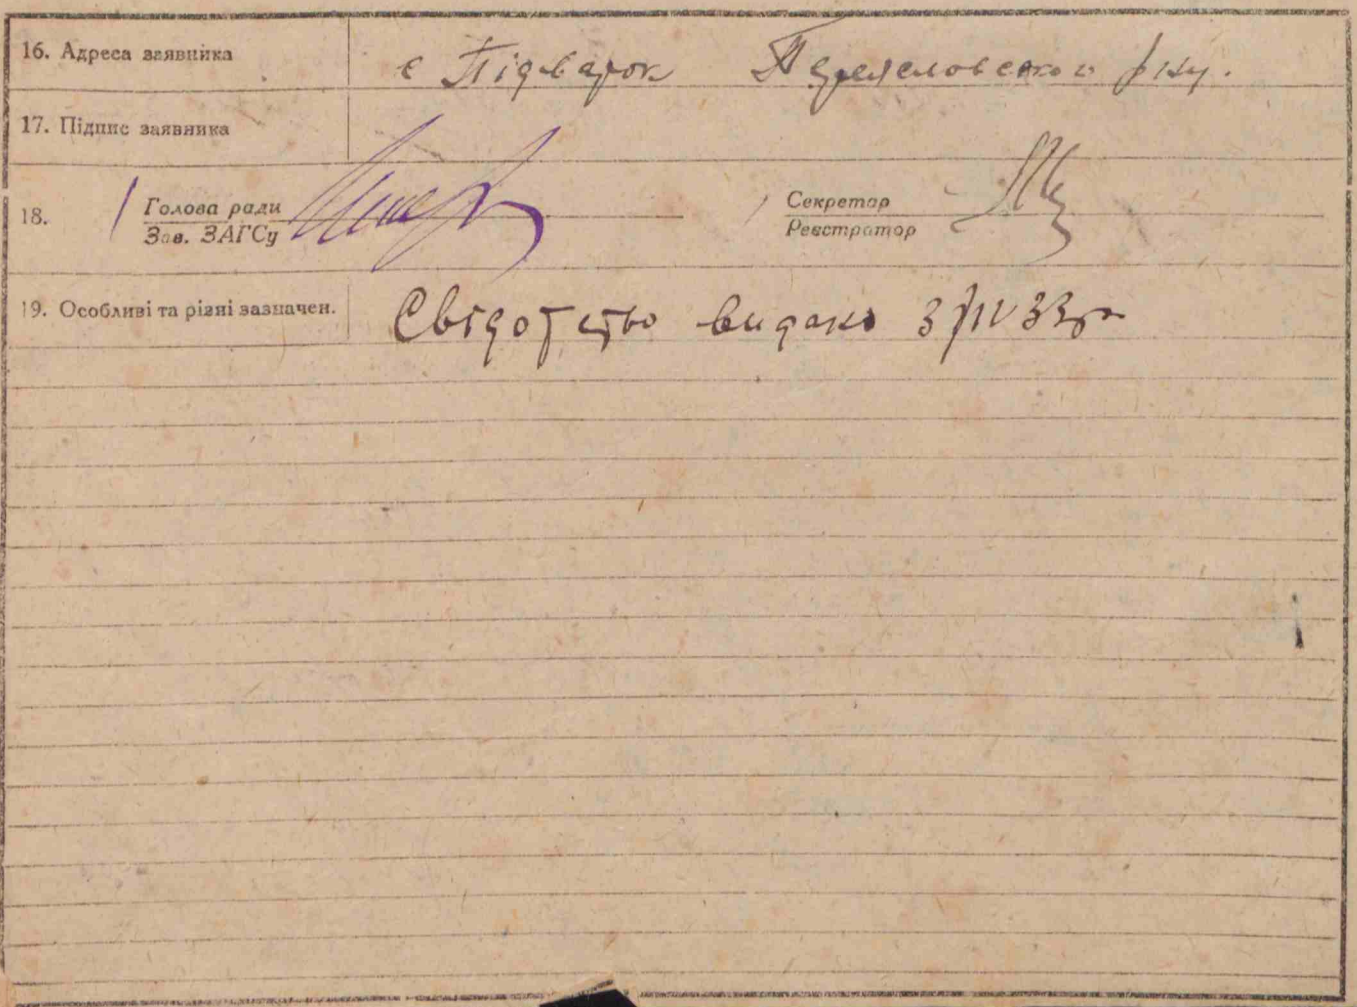 16. Адреса заявника с Підварок Переяславського р-ну.
17. Підпис заявника
18. Голова ради Секретар
Зав. ЗАГСу Реєстратор
19. Особливі та різні зазначен. Свідотство видано 3/IV 33 р